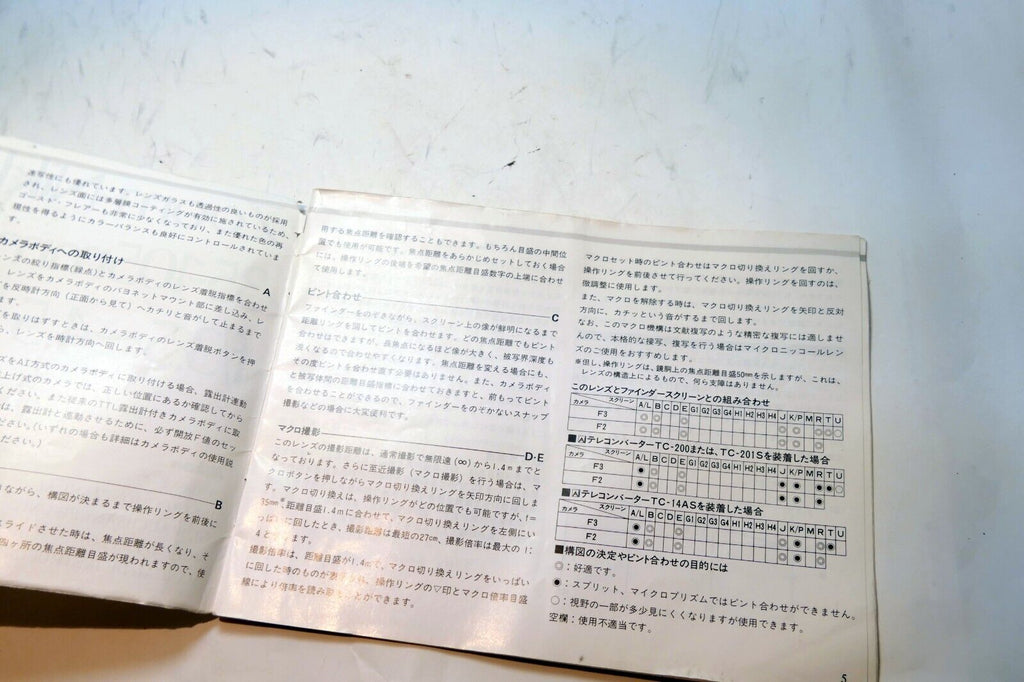 速写性にも優れています。レンズガラスも透過性の良いものが採用
され、レンズ面には多層膜コーティングが有効に施されているため、
ゴースト・フレアーも非常に少なくなっており、また優れた色の再
現性を得るようにカラーバランスも良好にコントロールされていま
す。
カメラボディへの取り付け
A
ンズの絞り指標(線点)とカメラボディのレンズ着脱指標を合わせ
レンズをカメラボディのバヨネットマウント部に差し込み、レ
を反時計方向(正面から見て)へカチリと音がして止まるまで
ます。
を取りはずすときは、カメラボディのレンズ着脱ボタンを押
ら、レンズを時計方向へ回します。
ズをAI方式のカメラボディに取り付ける場合、露出計連動
上げ式のカメラでは、正しい位置にあるか確認してから
ください。また従来のTTL露出計付きカメラボディに取
は、露出計と連動させるために、必ず開放F値のセッ
ださい。(いずれの場合も詳細はカメラボディの使用説
ださい。)
B
ながら、構図が決まるまで操作リングを前後に
スライドさせた時は、焦点距離が長くなり、そ
四ヶ所の焦点距離目盛が現われますので、使
用する焦点距離を確認することもできます。もちろん目盛の中間位
置でも使用が可能です。焦点距離をあらかじめセットしておく場合
には、操作リングの後端を希望の焦点距離目盛数字の上端に合わせ
て使用します。
ピント合わせ
C
ファインダーをのぞきながら、スクリーン上の像が鮮明になるまで
距離リングを回してピントを合わせます。どの焦点距離でもピント
合わせはできますが、長焦点になるほど像が大きく、被写界深度も
浅くなるので合わせやすくなります。焦点距離を変える場合にも、
その度ピントを合わせ直す必要はありません。また、カメラボディ
と被写体間の距離目盛指標に合わせておきますと、前もってピント
を合わせることができるので、ファインダーをのぞかないスナップ
撮影などの場合に大変便利です。
マクロ撮影
D・E
このレンズの撮影距離は、通常撮影で無限遠(∞)から1.4mまでと
なっております。さらに至近撮影(マクロ撮影)を行う場合は、マ
クロボタンを押しながらマクロ切り換えリングを矢印方向に回しま
す。マクロ切り換えは、操作リングがどの位置でも可能ですが、f=
35mm※距離目盛1.4mに合わせて、マクロ切り換えリングを左側にい
っぱいに回したとき、撮影距離は最短の27cm、撮影倍率は最大の1:
4となります。
撮影倍率は、距離目盛が1.4mで、マクロ切り換えリングをいっぱい
に回した時のものが表 操作リングの▽印とマクロ倍率目盛
線により倍率を読み取ることができます。
マクロセット時のピント合わせはマクロ切り換えリングを回すか、
操作リングを前後させて行ってください。操作リングを回すのは、
微調整に使用します。
また、マクロを解除する時は、マクロ切り換えリングを矢印と反対
方向に、カチッという音がするまで回します。
なお、このマクロ機構は文献複写のような精密な複写には適しませ
んので、本格的な接写、複写を行う場合はマイクロニッコールレン
ズのご使用をおすすめします。
※但し、操作リングは、鏡胴上の焦点距離目盛50mmを示しますが、これは、
レンズの構造上によるもので、何ら支障はありません。
このレンズとファインダースクリーンとの組み合わせ
カメラ スクリーン A/L B C D E G1 G2 G3 G4 H1 H2 H3 H4 J K/P M R T U
F3 ◎ ◎ ◎ ◎ ◎
F2 ◎ ◎ ◎ ◎ ◎
■AiテレコンバーターTC-200または、TC-201Sを装着した場合
カメラ スクリーン A/L B C D E G1 G2 G3 G4 H1 H2 H3 H4 J K/P M R T U
F3
F2
■AiテレコンバーターTC-14ASを装着した場合
カメラ スクリーン A/L B C D E G1 G2 G3 G4 H1 H2 H3 H4 J K/P M R T U
F3
F2
■構図の決定やピント合わせの目的には
◎:好適です。
:スプリット、マイクロプリズムではピント合わせができません。
○:視野の一部が多少見にくくなりますが使用できます。
空欄:使用不適当です。
5